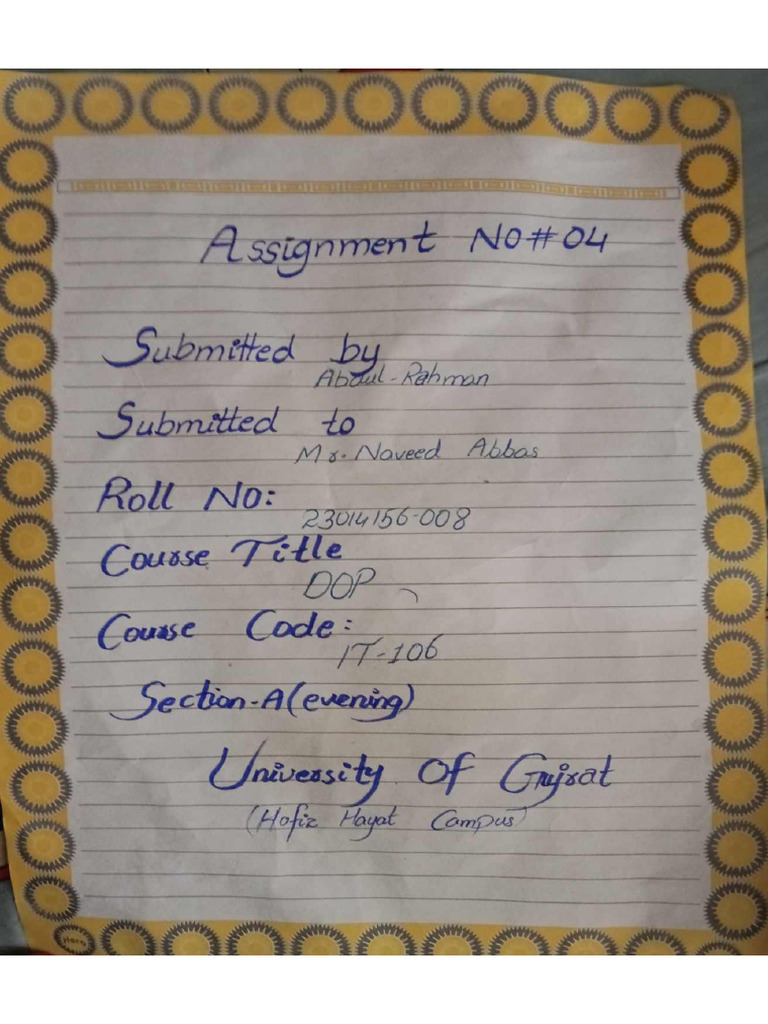 Assignment NO#04
Submitted by
Abdul-Rahman
Submitted to
Mr. Naveed Abbas
Roll NO:
23014156-008
Course Title
OOP
Course Code:
IT-106
Section-A(evening)
University Of Gujrat
(Hafiz Hayat Campus)
Hero